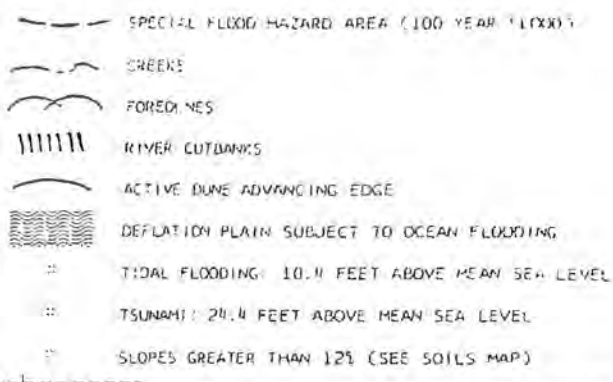 SPECIAL FLOOD HAZARD AREA (100 YEAR FLOOD)
CREEKS
FOREDUNES
RIVER CUTBANKS
ACTIVE DUNE ADVANCING EDGE
DEFLATION PLAIN SUBJECT TO OCEAN FLOODING
TIDAL FLOODING: 10.4 FEET ABOVE MEAN SEA LEVEL
TSUNAMI: 24.4 FEET ABOVE MEAN SEA LEVEL
SLOPES GREATER THAN 12% (SEE SOILS MAP)